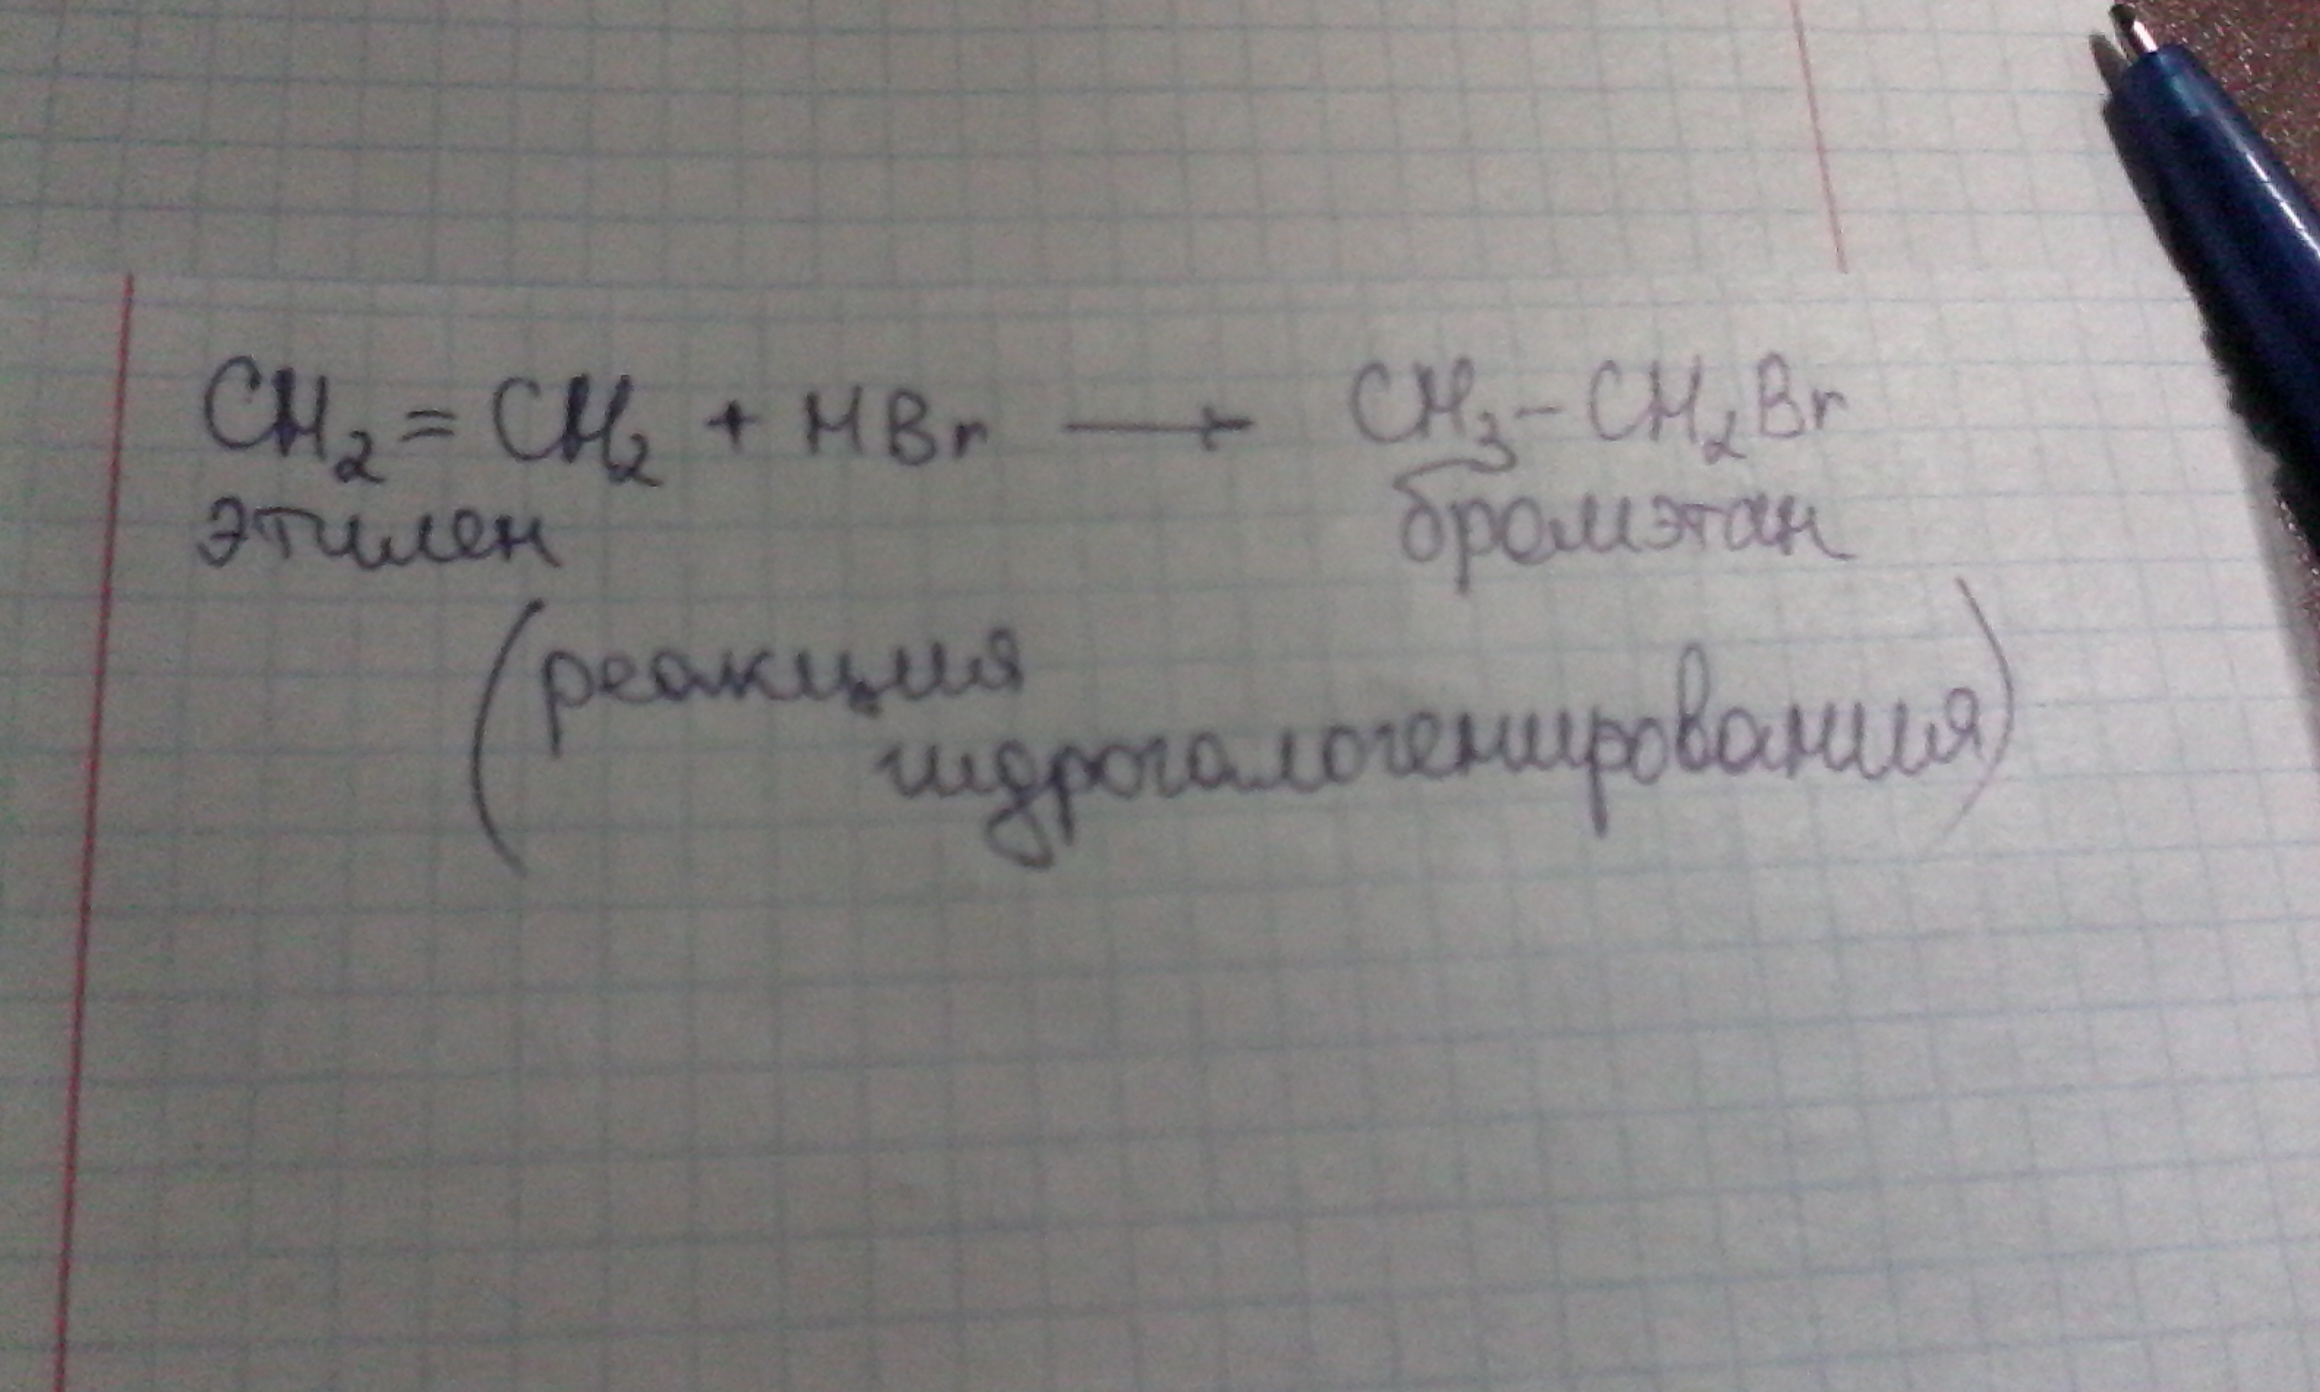 CH₂ = CH₂ + HBr → CH₃ - CH₂Br
этилен бромэтан
(реакция
гидрогалогенирования)